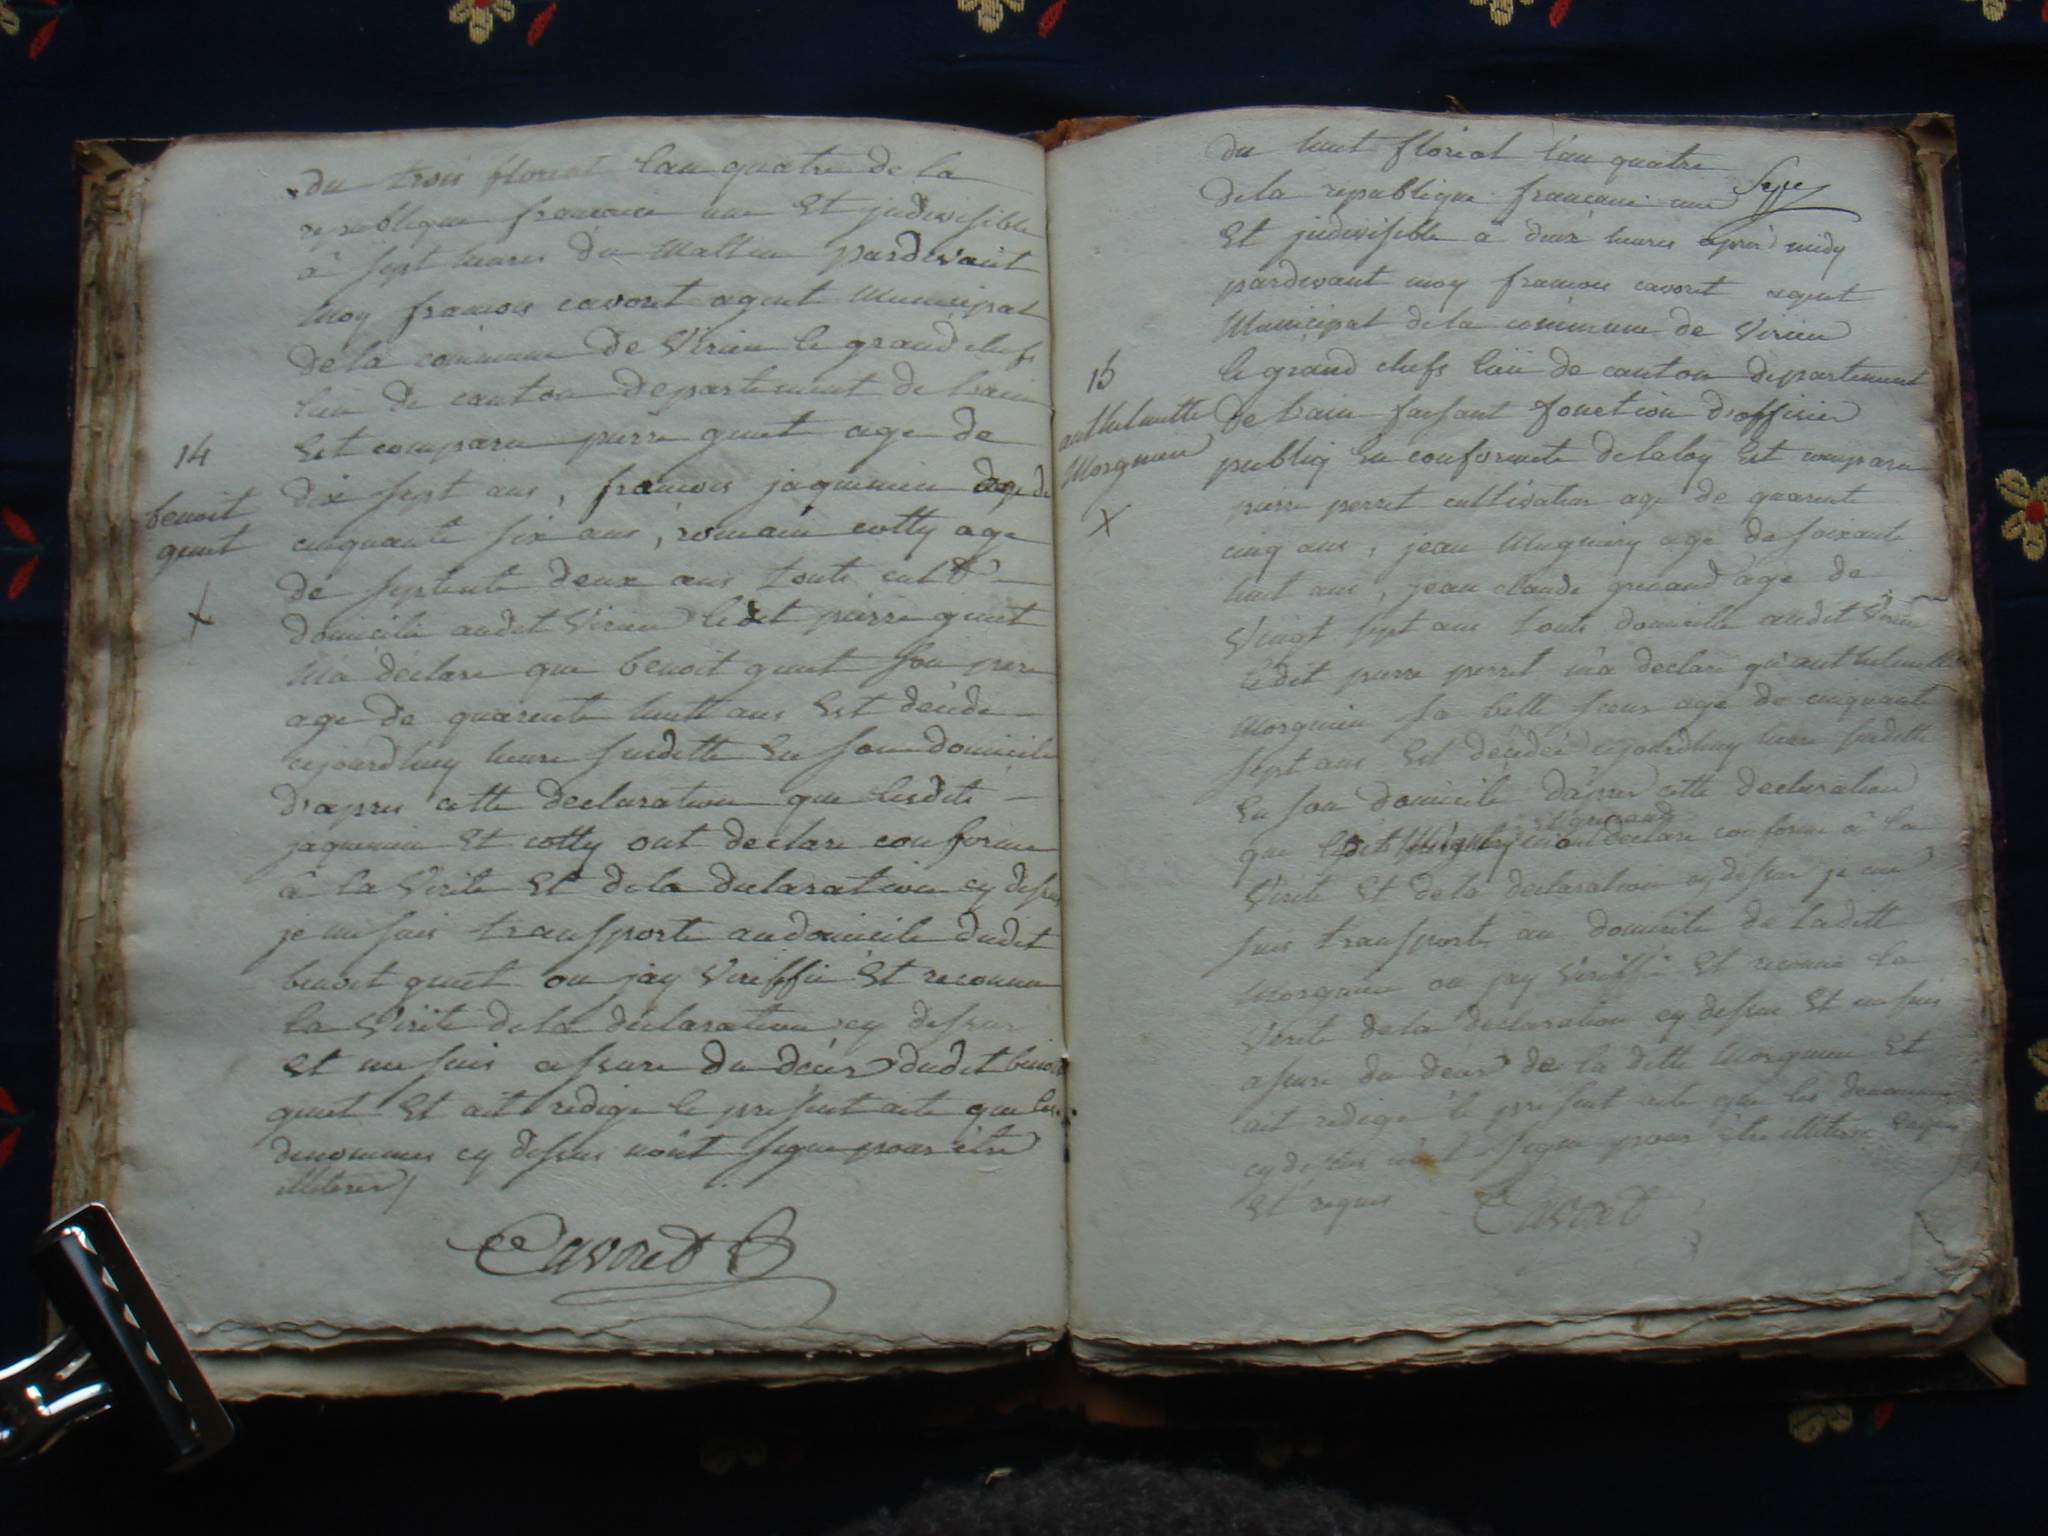 du trois floreal lan quatre de la
republique francaise une et jndivisible
a sept heures du mattin pardevant
moy francois cavoret agent municipal
de la commune de Virieu le grand chefs
lieu de canton departement de lain
est comparu pierre guiet age de
14
dix sept ans, francois jaquemin age de
benoit
guiet
cinquante six ans, romain cotty age
de septente deux ans touts cultr
domicilie audit Virieu ledit pierre guiet
ma declare que benoit guiet son pere
age de quarente huitt ans est decede
cejourdhuy heure susditte en son domicile
d'apres cette declaration que lesdits
jaquemin et cotty ont declare conforme
a la Verite et de la declaration cy dessus
je me suis transporte au domicile dudit
benoit guiet ou jay Veriffie et reconnu
la Verite de la declaration cy dessus
et me suis assure du deces dudit benoit
guiet et ait redige le present acte que les
denommes cy dessus n'ont signe pour etre
illiteres
Cavoret
du huit floreal lan quatre
de la republique francaise une
et jndivisible a deux heures apres midy
pardevant moy francois cavoret agent
municipal de la commune de Virieu
15
le grand chefs lieu de canton departement
anthelmette
Morgnieu
de lain faisant fonction d'officier
publiq en conformite de la loy est comparu
X
pierre perret cultivateur age de quarente
cinq ans, jean age de soixante
huit ans, jean claude grinand age de
Vingt sept ans touts domicilie audit Virieu
ledit pierre perret m'a declare qu'anthelmette
morgnieu sa belle soeur age de cinquante
sept ans est decedee cejourdhuy heure susditte
en son domicile d'apres cette declaration
et grinand
que m'ont declare conforme a la
Verite et de la declaration cy dessus je me
suis transporte au domicile de laditte
morgnieu ou jay Veriffie et reconnu la
Verite de la declaration cy dessus et me suis
assure du deces de la ditte morgnieu et
ait redige le present acte que les denommes
cy dessus n'ont signe pour etre illiteres enquis
et requis
Cavoret